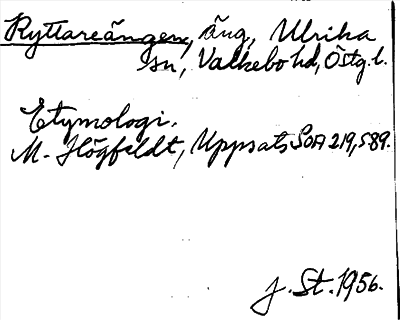 Ryttareängen, äng, Ulrika
sn, Valkebo hd, Östg. l.
Etymologi.
M. Högfeldt, Uppsats SOA 219,589.
J. St. 1956.